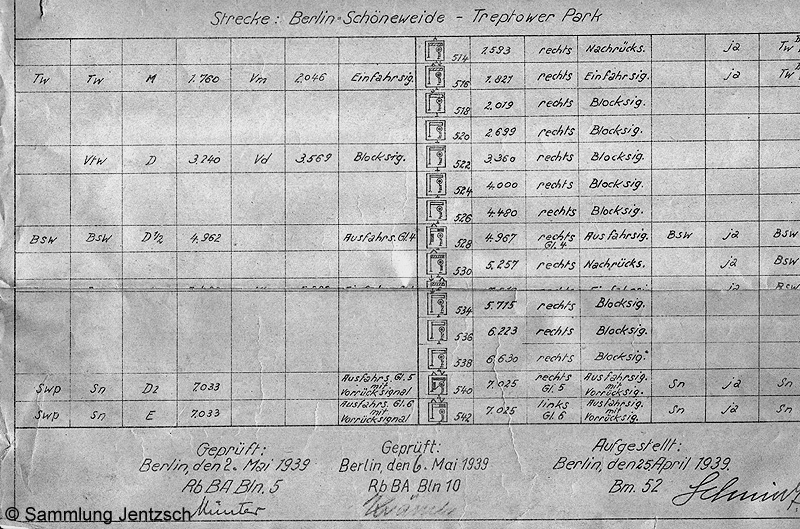 Strecke: Berlin-Schöneweide - Treptower Park
514 1.593 rechts Nachrücks. ja Tw
Tw Tw M 1.760 Vm 2.046 Einfahrsig. 516 1.827 rechts Einfahrsig. ja Tw
518 2.019 rechts Blocksig.
520 2.699 rechts Blocksig.
Vtw D 3.240 Vd 3.569 Blocksig. 522 3.360 rechts Blocksig.
524 4.000 rechts Blocksig.
526 4.480 rechts Blocksig.
Bsw Bsw D1/2 4.962 Ausfahrs. Gl.4 528 4.967 rechts Gl. 4 Ausfahrsig. Bsw ja Bsw
530 5.257 rechts Nachrücks. ja Bsw
ja Bsw
534 5.715 rechts Blocksig.
536 6.223 rechts Blocksig.
538 6.630 rechts Blocksig.
Swp Sn D2 7.033 Ausfahrs. Gl. 5 mit Vorrücksignal 540 7.025 rechts Gl. 5 Ausfahrsig. mit Vorrücksig. Sn ja Sn
Swp Sn E 7.033 Ausfahrs. Gl.6 mit Vorrücksignal 542 7.025 links Gl. 6 Ausfahrsig. mit Vorrücksig. Sn ja Sn
Geprüft:
Berlin, den 2. Mai 1939
Rb BA Bln. 5
Münter
Geprüft:
Berlin, den 6. Mai 1939
Rb BA Bln 10
Aufgestellt:
Berlin, den 25 April 1939.
Bm. 52
© Sammlung Jentzsch